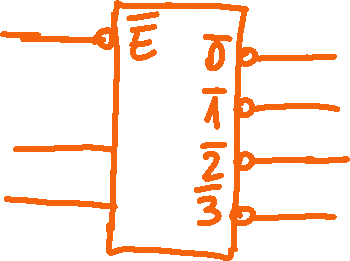 E̅
0̅
1̅
2̅
3̅